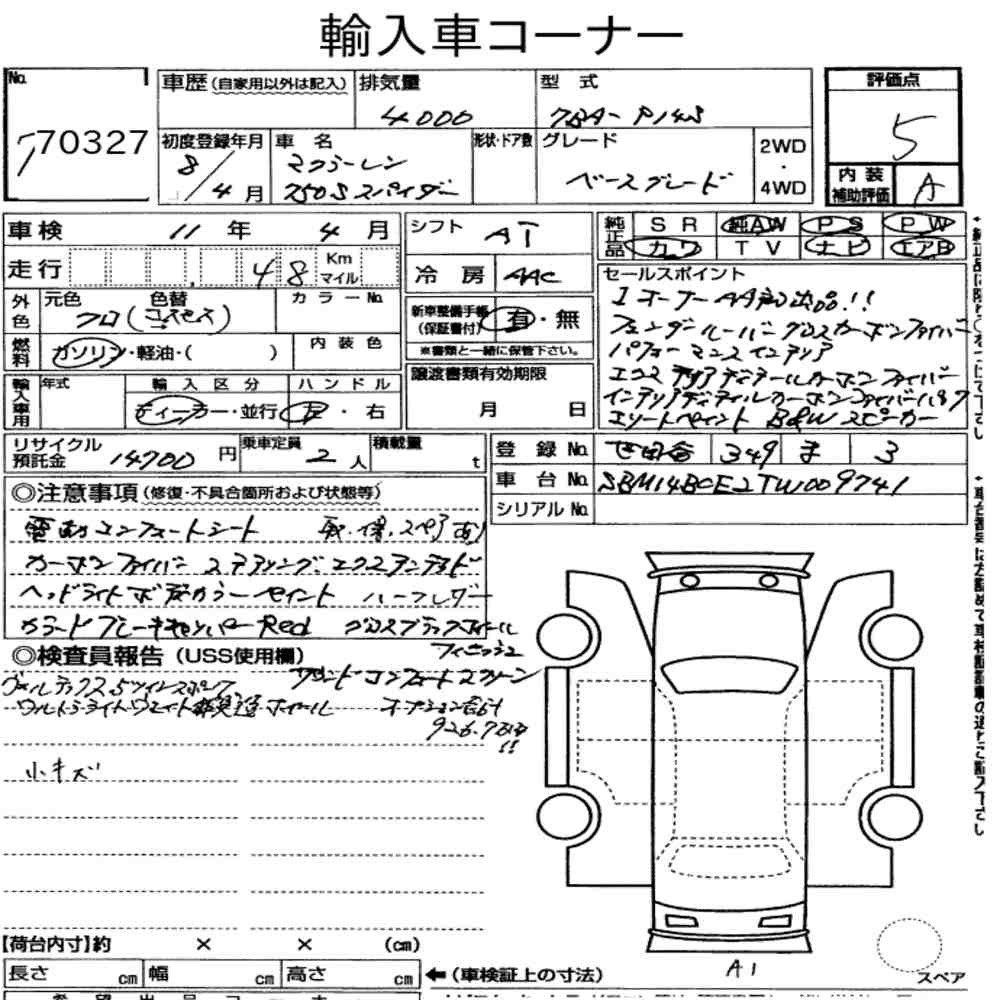 輸入車コーナー
No. 770327
車歴(自家用以外は記入)
排気量 4000
型式 7BA-P14S
評価点 5
初度登録年月 8/4月
車名 マクラーレン 750Sスパイダー
形状・ドア数
グレード ベースグレード
2WD・4WD
内装補助評価 A
車検 11年 4月
シフト AT
純正品 SR 純AW PS PW
カワ TV ナビ エアB
走行 48 Km マイル
冷房 AAC
セールスポイント
1オーナー AA初出品!!
フェンダールーバーグロスカーボンファイバー
パフォーマンスインテリア
エクステリアディテールカーボンファイバー
インテリアディティルカーボンファイバーパック
エリートペイント B&Wスピーカー
外色 元色 色替 カラーNo.
クロ(コスモス)
新車整備手帳(保証書付) 有・無
※書類と一緒に保管下さい。
燃料 ガソリン・軽油・( )
内装色
譲渡書類有効期限
月 日
輸入車用 年式 輸入区分 ハンドル
ディーラー・並行 左・右
リサイクル預託金 14700円
乗車定員 2人
積載量 t
登録No. 世田谷 349 ま 3
車台No. SBM14BCE2TW009741
シリアルNo.
◎注意事項(修復・不具合箇所および状態等)
電動コンフォートシート 取・保・スペアあり
カーボンファイバーステアリング、エクステンデッド
ヘッドライトボディカラーペイント ハーフレザー
カラードブレーキキャリパーRed グロスブラックホイール
フィニッシュ
◎検査員報告(USS使用欄)
ヴォルテックス5ツインスポーク
ウルトラライトウェイト鍛造ホイール
オプション合計
926.7万
!!
小キズ
【荷台内寸】約 × × (cm)
長さ cm 幅 cm 高さ cm
←(車検証上の寸法)
A1
スペア